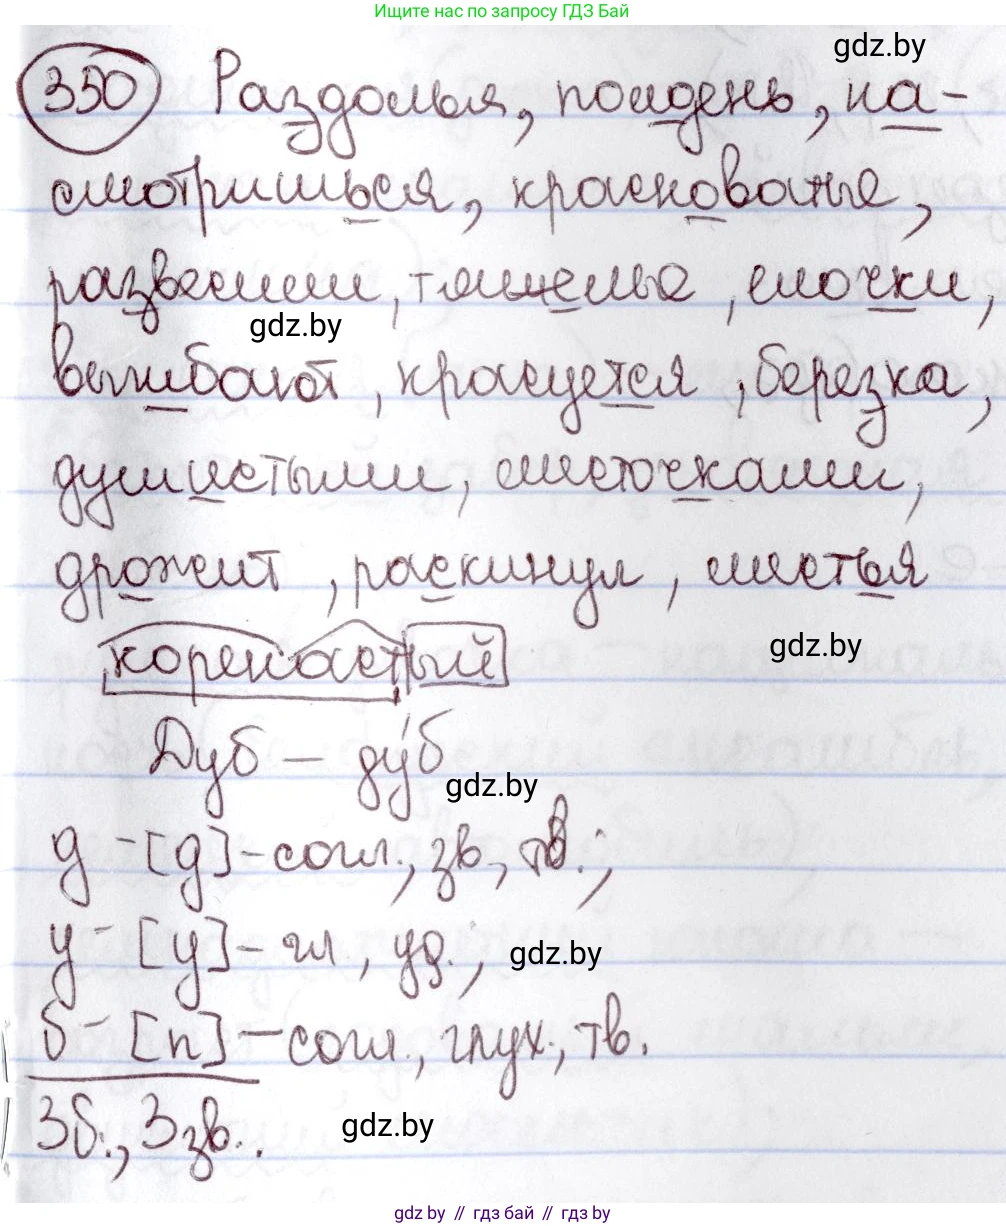 Ищите нас по запросу ГДЗ Бай
gdz.by
350 Раздолья, полдень, на-
смотришься, красноватые,
развесили, тяжелые, елочки,
gdz.by
выгибают, красуется, березка,
душистыми, листочками,
дрожит, раскинул, листья
gdz.by
коренастый
Дуб – ду́б
gdz.by
д – [д] – согл., зв., тв.;
у – [у] – гл., уд.;
gdz.by
б – [п] – согл., глух., тв.
3б., 3зв.
gdz.by
gdz.by // гдз бай // гдз.by